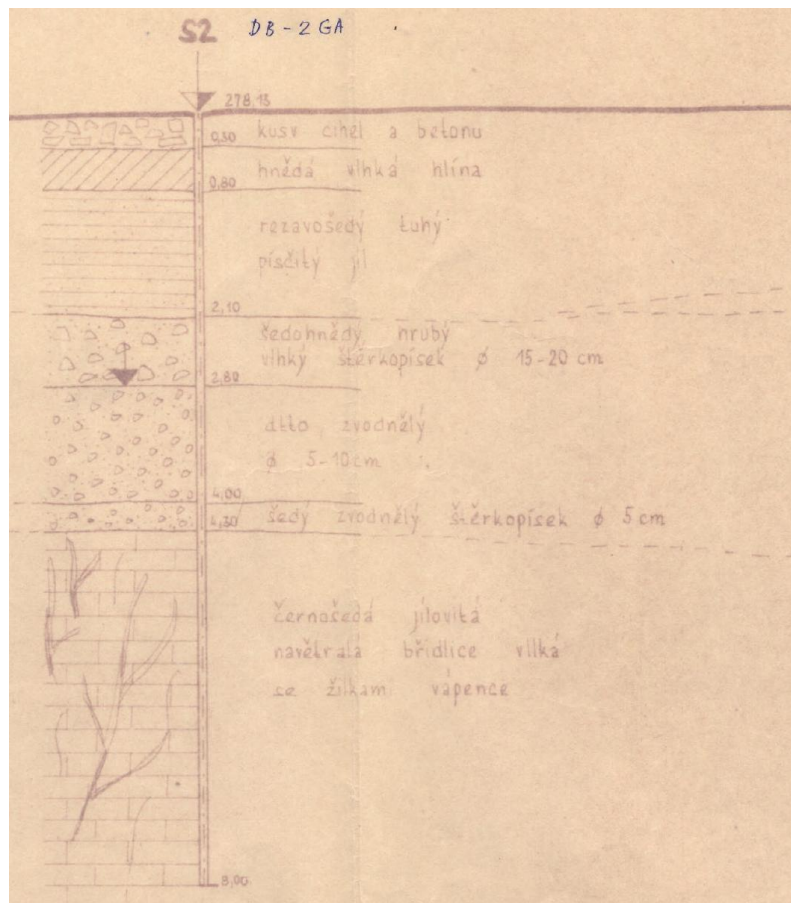 S2 DB-2 GA
278,15
0,50 kusy cihel a betonu
hnědá vlhká hlína
0,80
rezavošedý tuhý
písčitý jíl
2,10
šedohnědý hrubý
vlhký štěrkopísek ϕ 15-20 cm
2,80
dtto zvodnělý
ϕ 5-10cm
4,00
4,30 šedý zvodnělý štěrkopísek ϕ 5 cm
černošedá jílovitá
navětralá břidlice vlhká
se žilkam vápence
8,00